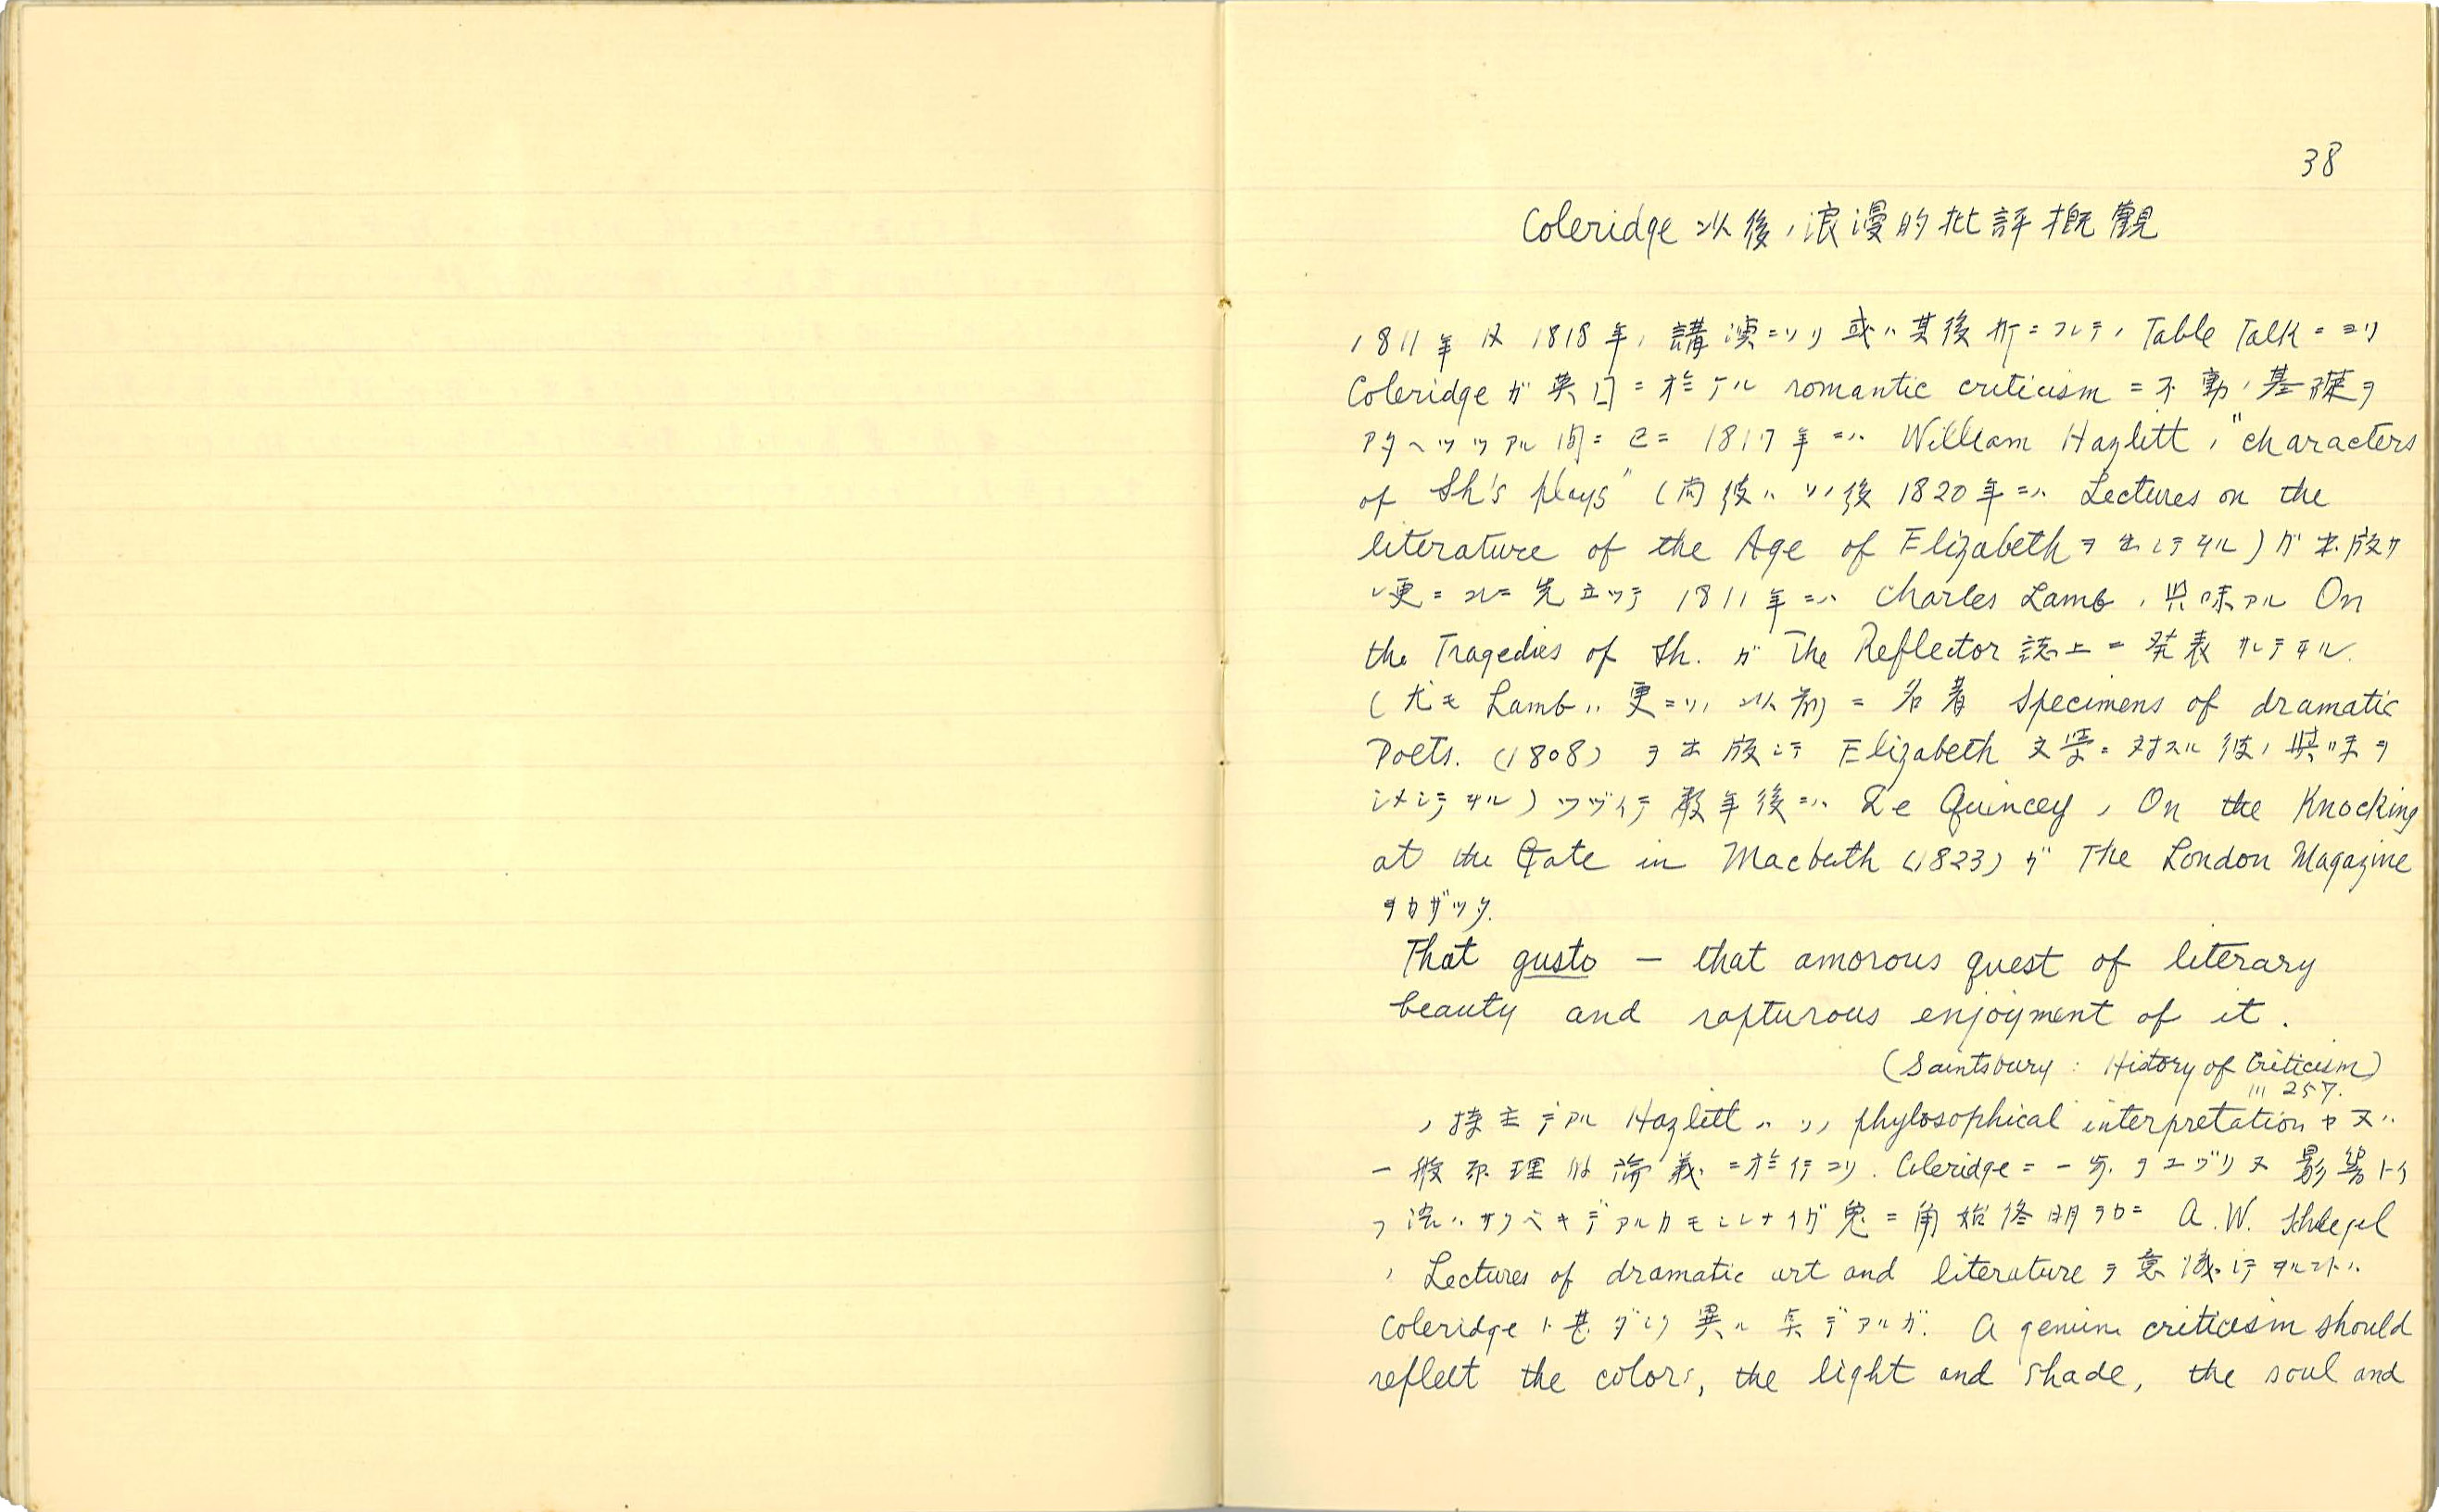 38
Coleridge 以後ノ浪漫的批評概觀
1811年及1818年ノ講演ニヨリ或ハ其後折ニフレテノ Table Talk ニヨリ
Coleridge ガ英国ニ於ケル romantic criticism ニ不動ノ基礎ヲ
アタヘツツアル間ニ已ニ 1817年ニハ William Hazlitt ノ "characters
of Sh's plays" (尚彼ハソノ後 1820年ニハ Lectures on the
literature of the Age of Elizabeth ヲ出シテヰル) ガ出版サ
レ更ニコレニ先立ツテ 1811年ニハ Charles Lamb ノ興味アル On
the Tragedies of Sh. ガ The Reflector 誌上ニ発表サレテヰル.
(尤モ Lamb ハ更ニソノ以前ニ名著 Specimens of dramatic
Poets. (1808) ヲ出版シテ Elizabeth 文学ニ対スル彼ノ興味ヲ
シメシテヰル) ツヅイテ数年後ニハ De Quincey ノ On the Knocking
at the Gate in Macbeth (1823) ガ The London Magazine
ヲカザツタ.
That gusto — that amorous quest of literary
beauty and rapturous enjoyment of it.
(Saintsbury : History of Criticism)
III 257.
ノ持主デアル Hazlitt ハソノ phylosophical interpretation ヤ又ハ
一般原理的論義ニ於テ Coleridge ニ一歩ヲユヅリ又影響トイ
フ デアルカモシレナイガ兎ニ角始終 A.W. Schlegel
ノ Lectures of dramatic art and literature ヲ意識シテヰルコトハ
Coleridge ト甚ダシク異ル点デアルガ. A genuine criticism should
reflect the colors, the light and shade, the soul and